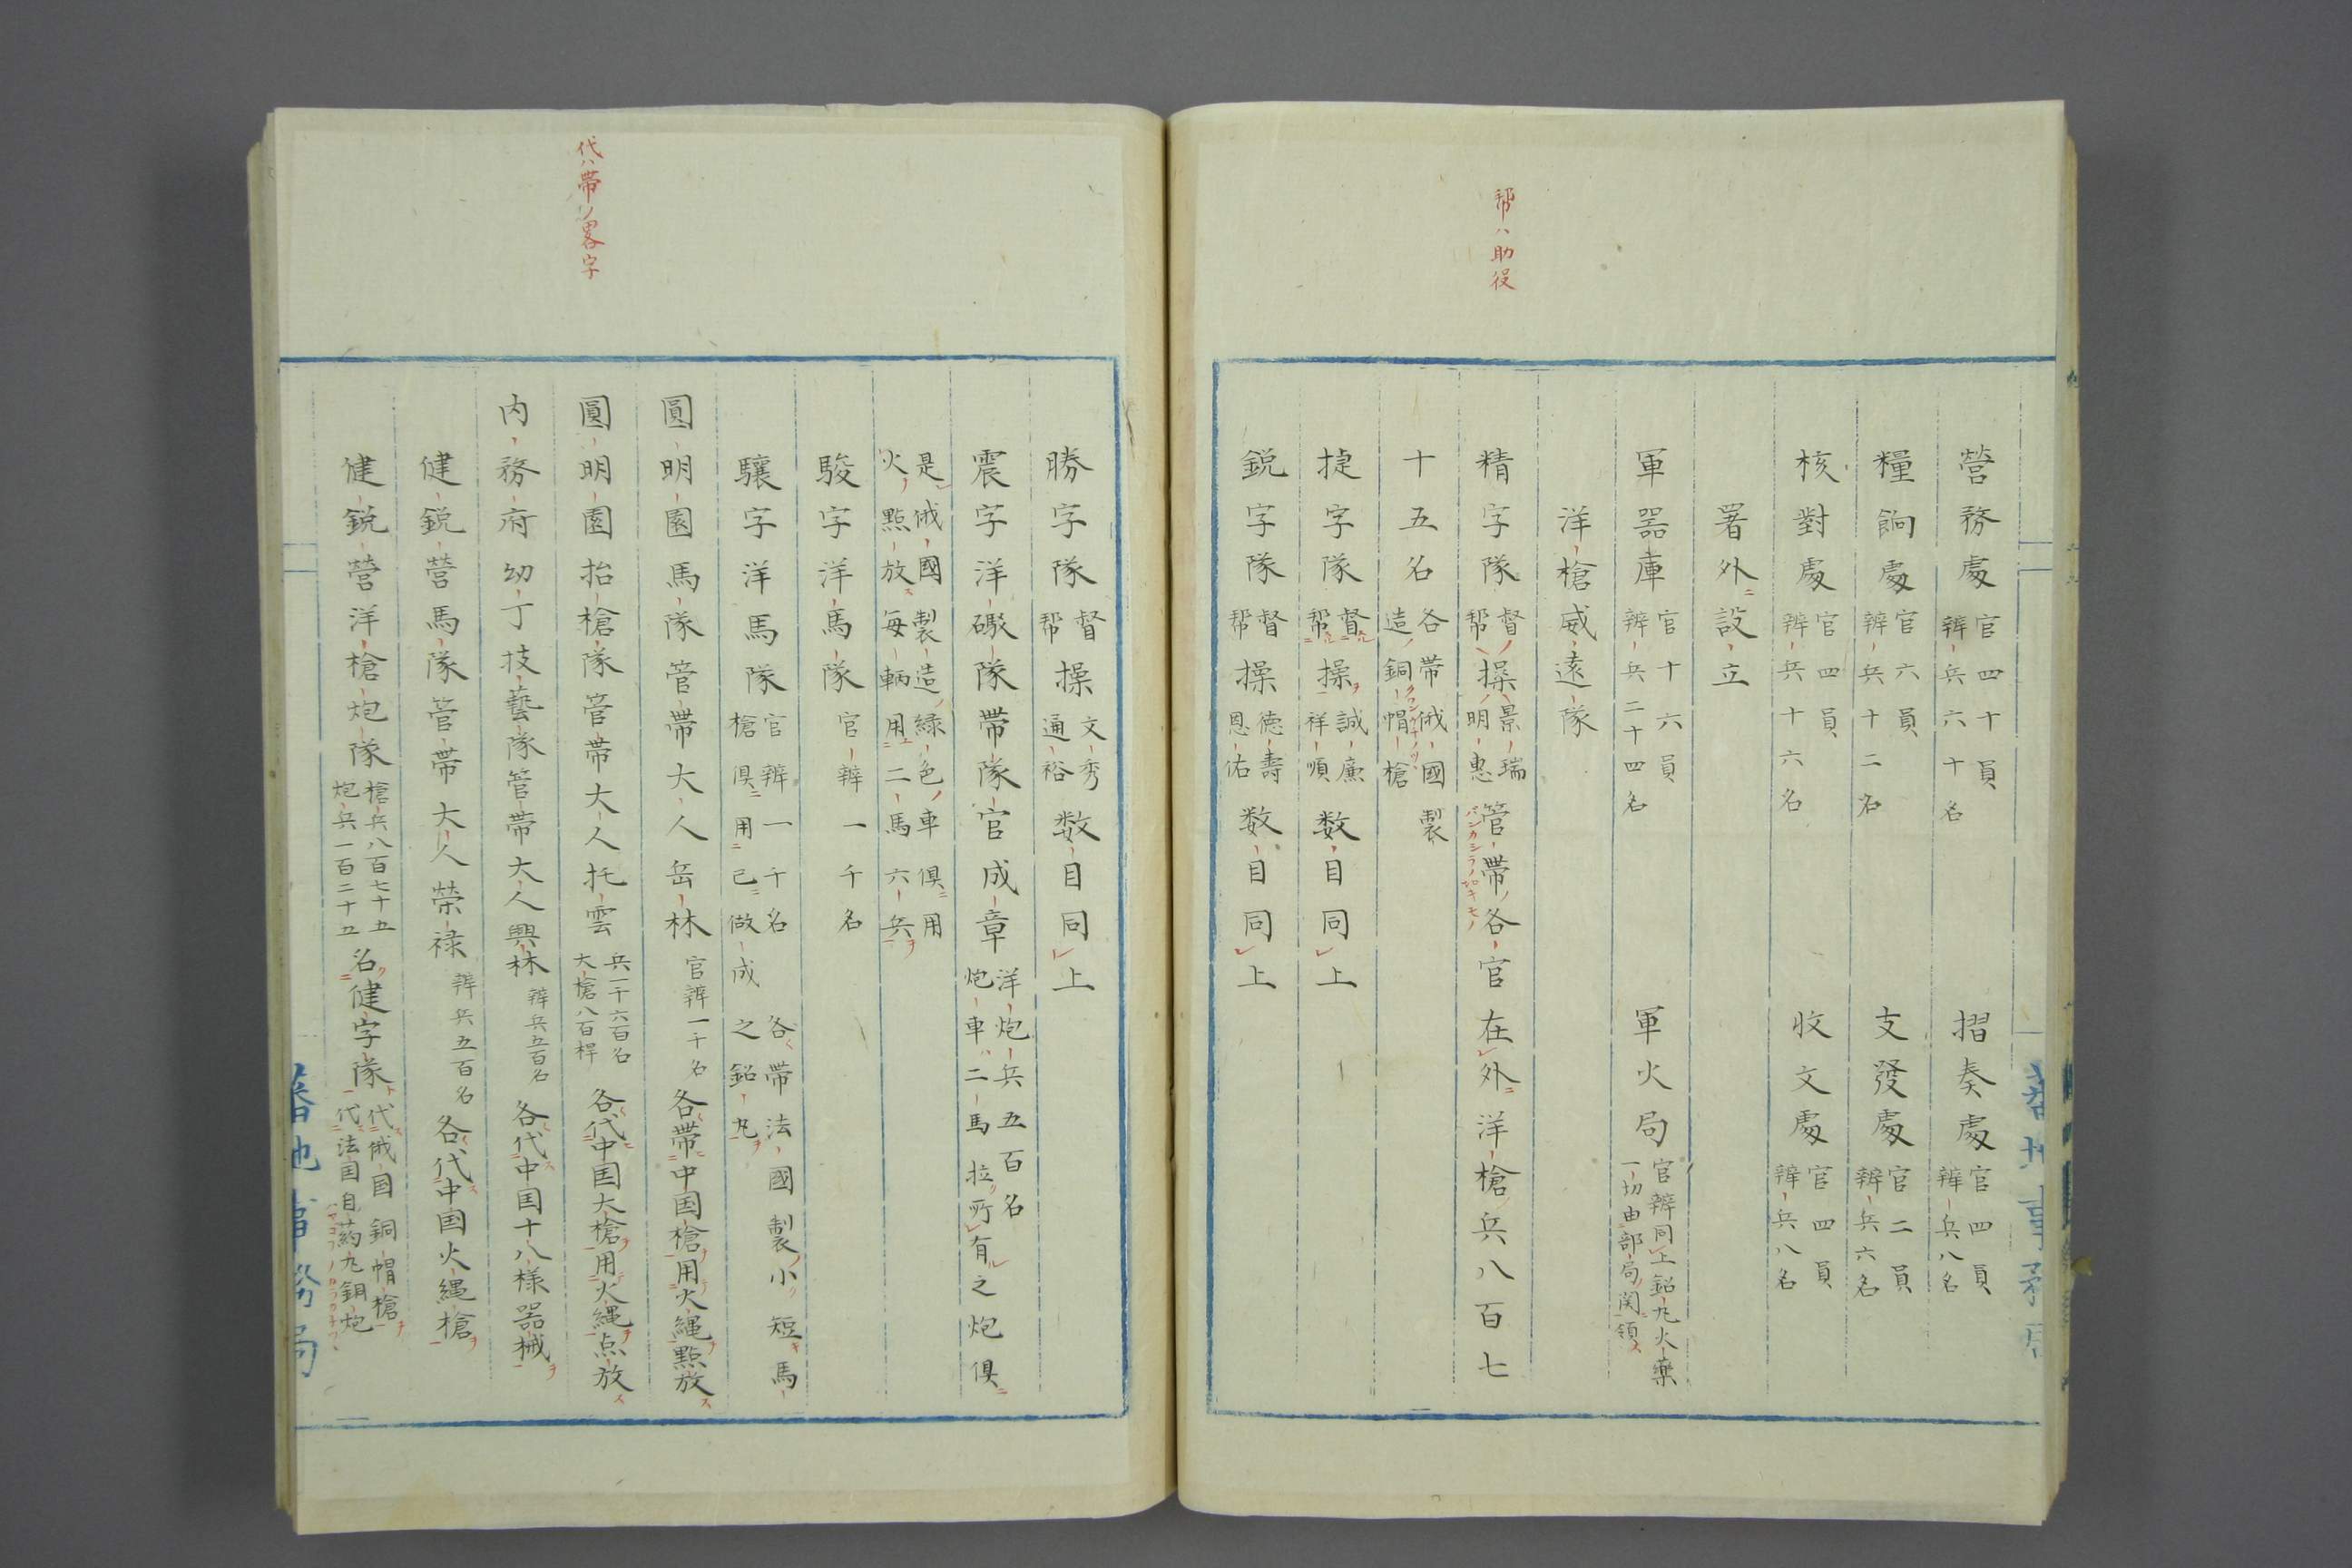 幇ハ助役
營務處 官四十員 辨兵六十名 摺奏處 官四員 辨兵八名
糧餉處 官六員 辨兵十二名 支發處 官二員 辨兵六名
核對處 官四員 辨兵十六名 收文處 官四員 辨兵八名
署外設立
軍器庫 官十六員 辨兵二十四名 軍火局 官辨同上鉛丸火藥 一切由部局関領
洋槍威遠隊
精字隊 督幇操 景瑞 明惠 管帶各官在外洋槍兵八百七
十五名 各帶俄國製 造銅帽槍
捷字隊 督幇操 誠廉 祥順 数目同上
鋭字隊 督幇操 德壽 恩佑 数目同上
代ハ帶ノ畧字
勝字隊 督幇操 文秀 通裕 数目同上
震字洋礮隊帶隊官成章 洋炮兵五百名 炮車二馬拉所有之炮俱
是俄國製造緑色車俱用 火點放每輌用二馬六兵
駿字洋馬隊 官辨一千名
驤字洋馬隊 官辨一千名各帶法國製小短馬 槍俱用已做成之鉛丸
圓明園馬隊管帶大人岳林 官辨一千名 各帶中国槍用火縄點放
圓明園抬槍隊管帶大人托雲 兵一千六百名 大槍八百桿 各代中国大槍用火縄点放
内務府幼丁技藝隊管帶大人興林 辨兵五百名 各代中国十八様器械
健鋭營馬隊管帶大人榮禄 辨兵五百名 各代中国火縄槍
健鋭營洋槍炮隊 槍兵八百七十五 炮兵一百二十五 名健字隊 代俄国銅帽槍 代法国自葯丸銅炮
蕃地事務局